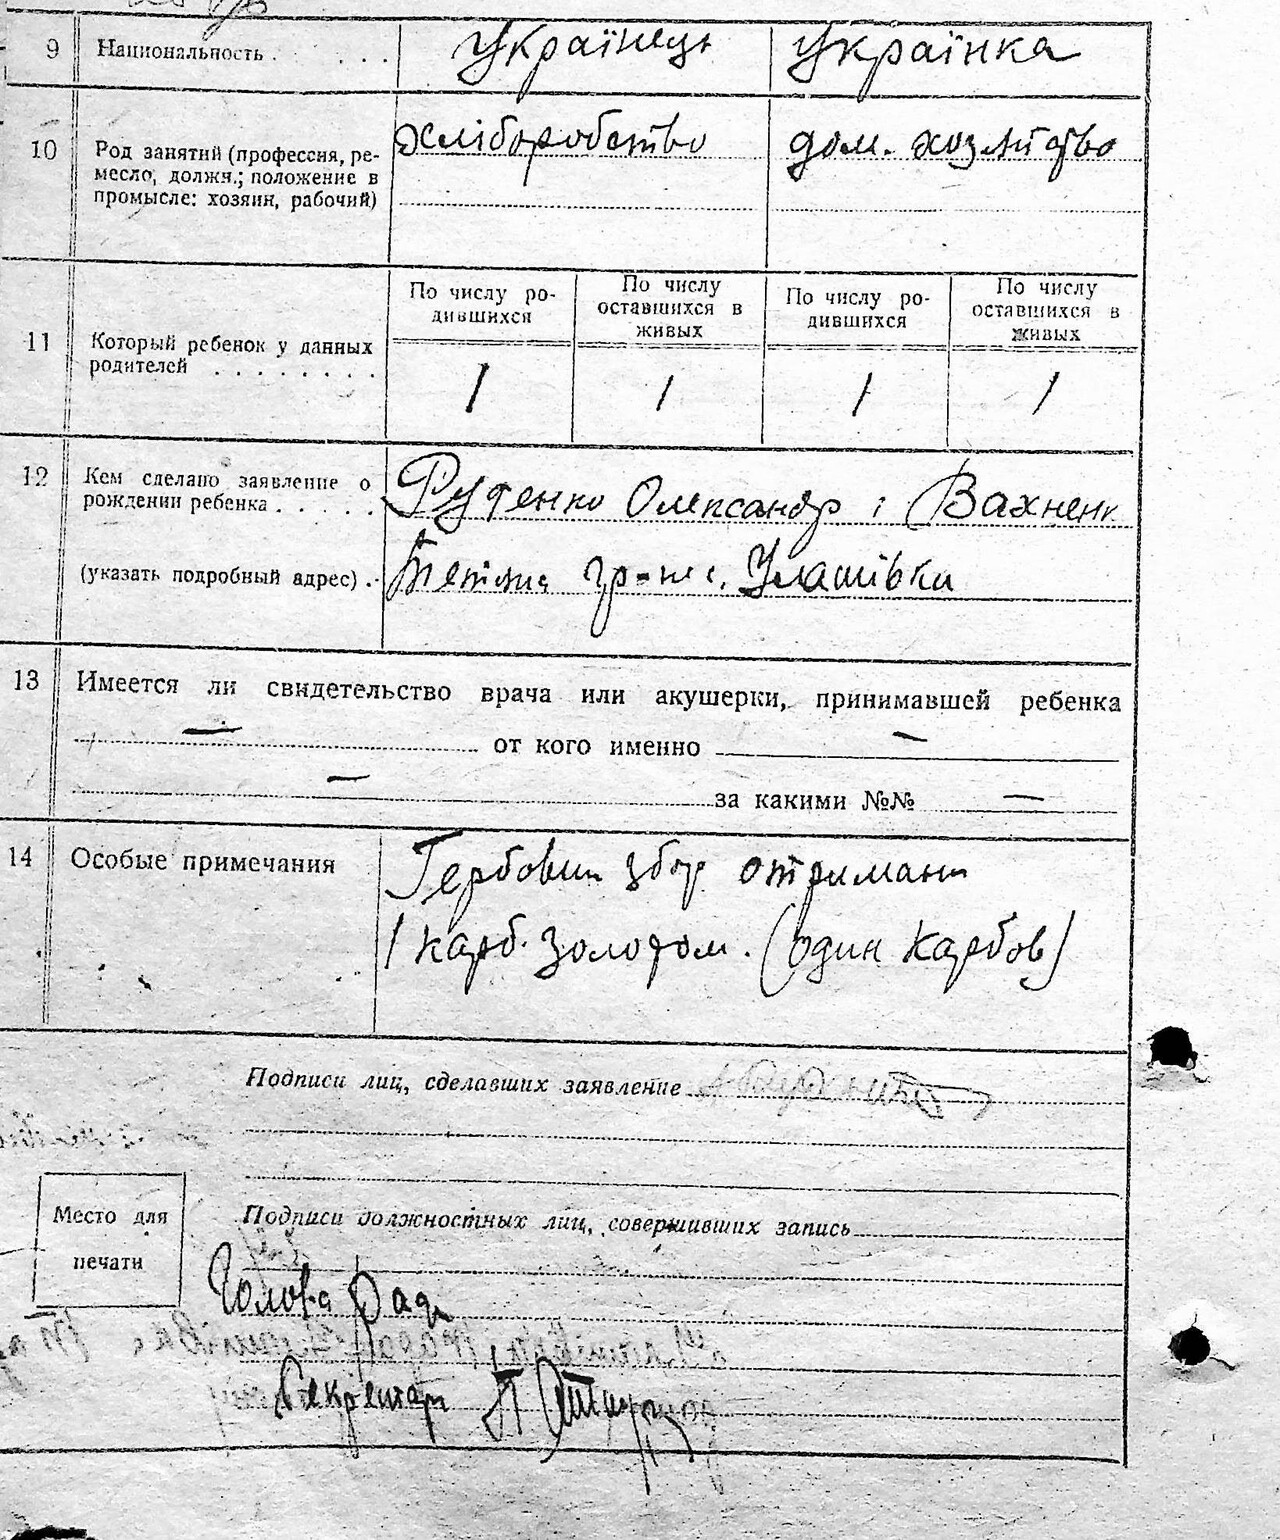 9 Национальность . . . . . Українець Українка
10 Род занятий (профессия, ре-
месло, должн.; положение в
промысле: хозяин, рабочий)
хліборобство дом. хозяйство
По числу ро-
дившихся
По числу
оставшихся в
живых
По числу ро-
дившихся
По числу
оставшихся в
живых
11 Который ребенок у данных
родителей . . . . . . . .
1 1 1 1
12 Кем сделано заявление о
рождении ребенка . . . . .
(указать подробный адрес) . .
Руденко Олександр і Вахненк
Тетяна гр-не с. Улашівки
13 Имеется ли свидетельство врача или акушерки, принимавшей ребенка
— от кого именно —
— за какими №№ —
14 Особые примечания
Гербовий збор отримано
1 карб. золотом. (один карбов)
Подписи лиц, сделавших заявление
Место для
печати
Подписи должностных лиц, совершивших запись
Голова Ради
Секретар